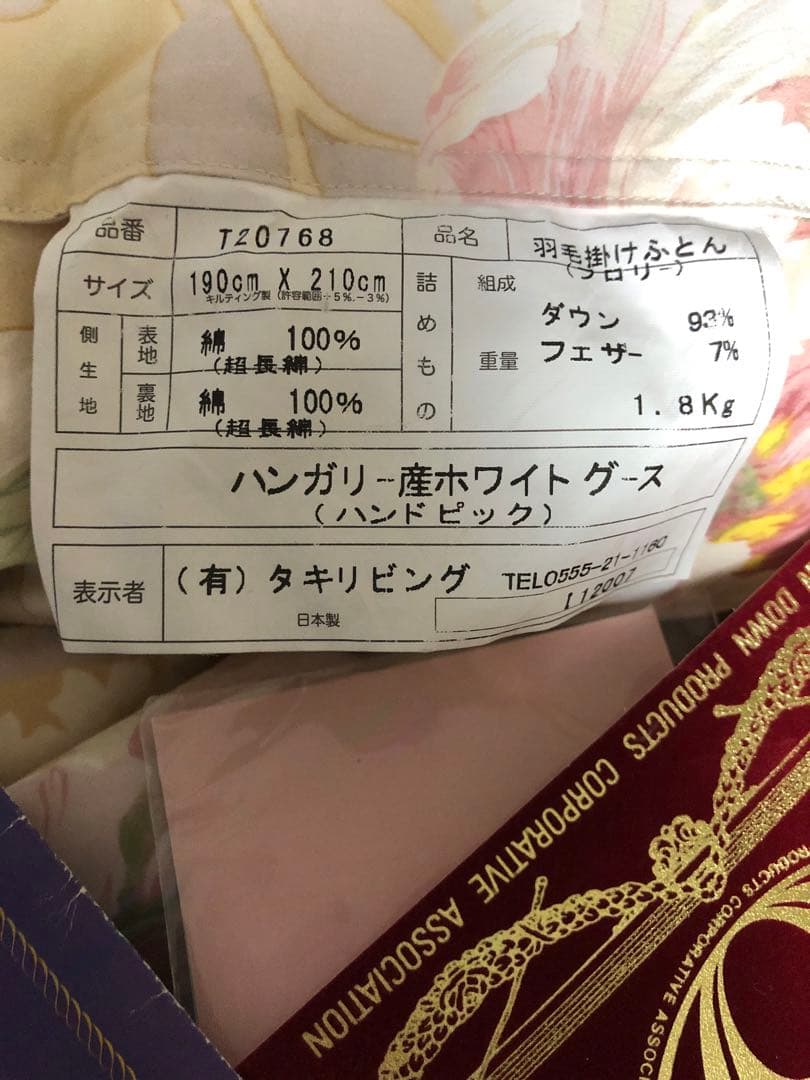 品番 T20768 品名 羽毛掛けふとん
(フロリー)
サイズ 190cm X 210cm
キルティング製 (許容範囲+5%.-3%)
側生地 表地 綿 100%
(超長綿)
裏地 綿 100%
(超長綿)
詰めもの 組成 ダウン 93%
フェザー 7%
重量 1.8Kg
ハンガリー産ホワイトグース
(ハンドピック)
表示者 (有) タキリビング TEL0555-21-1160
日本製 I12007
N DOWN PRODUCTS CORPORATIVE ASSOCIATION
PRODUCTS CORPORATIVE ASSOC